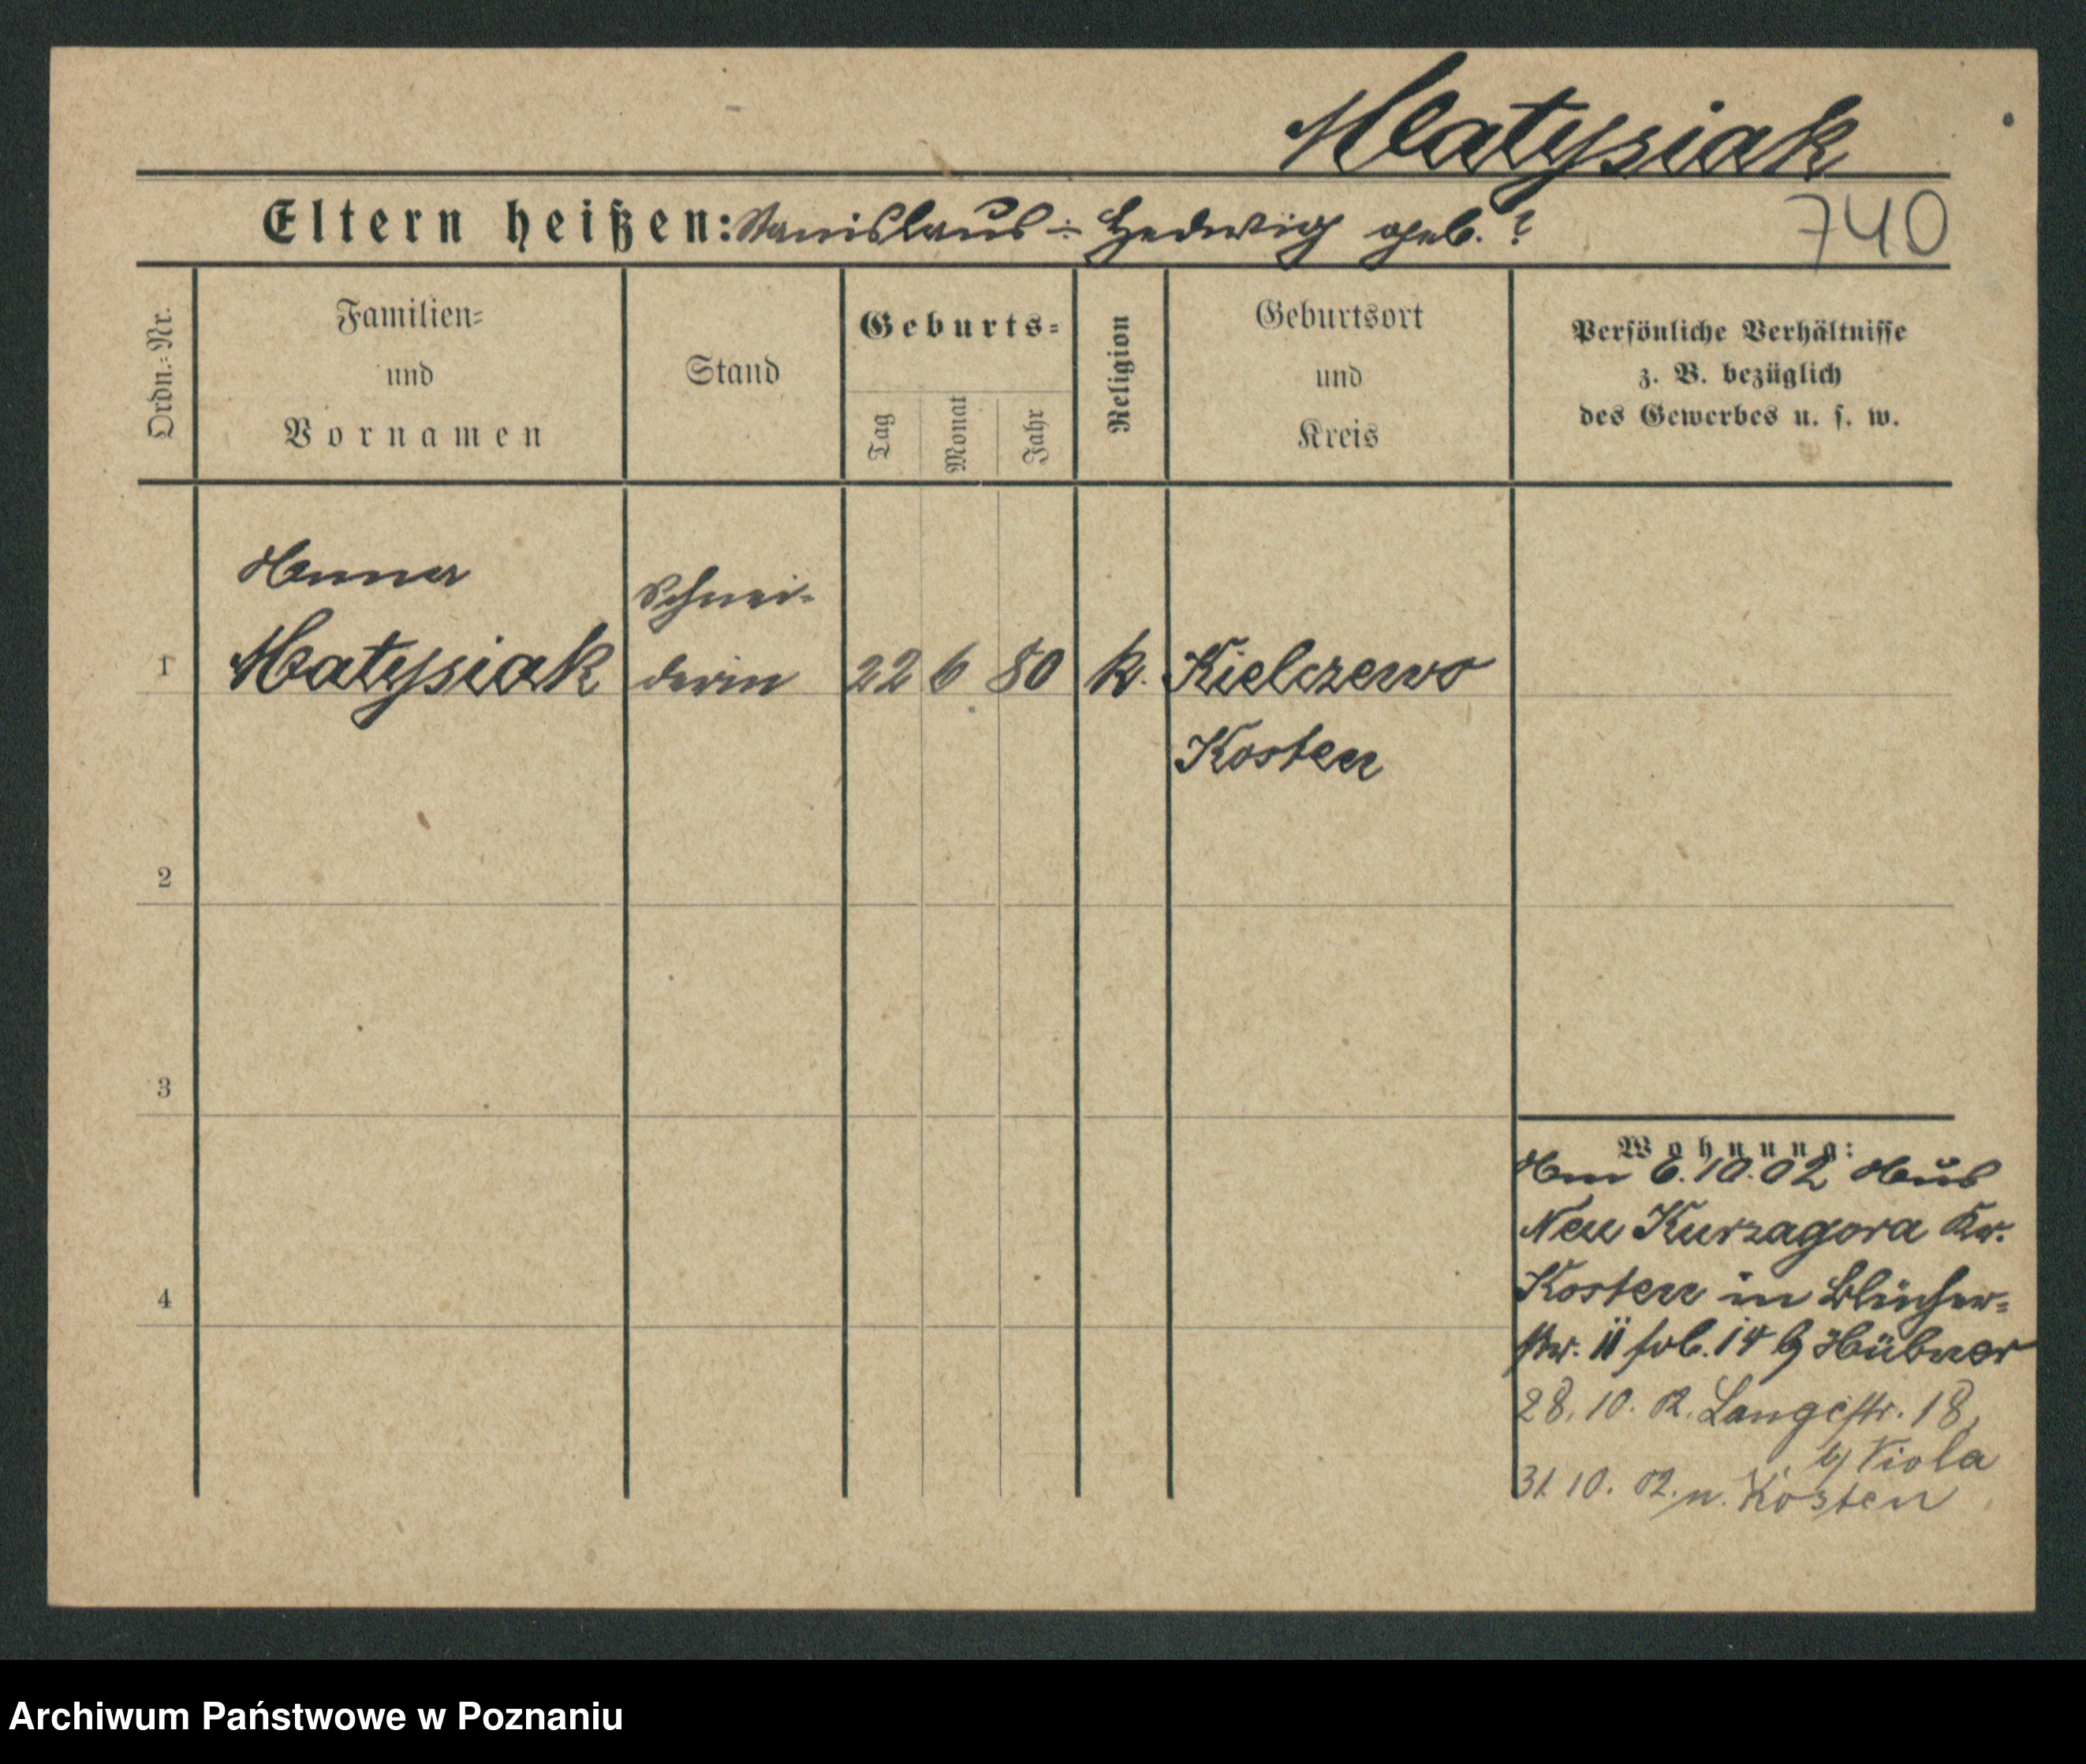 Matysiak
740
Eltern heißen: Stanislaus - Hedwig geb. ?
Ordn.-Nr.
Familien-
und
Vornamen
Stand
Geburts-
Tag
Monat
Jahr
Religion
Geburtsort
und
Kreis
Persönliche Verhältnisse
z. B. bezüglich
des Gewerbes u. s. w.
Anna
Schnei-
1 Matysiak derin 22 6 80 k. Kielczewo
Kosten
2
3
4
Wohnung:
Am 6.10.02 aus
Neu Kurzagora Kr.
Kosten in Blücher-
str. 11 frb. 14 b/ Hübner
28. 10. 02. Langestr. 18,
b/ Viola
31. 10. 02. n. Kosten
Archiwum Państwowe w Poznaniu